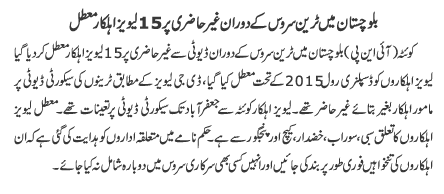 بلوچستان میں ٹرین سروس کے دوران غیر حاضری پر 15 لیویز اہلکار معطل
کوئٹہ (آئی این پی) بلوچستان میں ٹرین سروس کے دوران ڈیوٹی سے غیر حاضری پر 15 لیویز اہلکار معطل کر دیا گیا
لیویز اہلکاروں کو ڈسپلنری رول 2015 کے تحت معطل کیا گیا، ڈی جی لیویز کے مطابق ٹرینوں کی سیکورٹی ڈیوٹی پر
مامور اہلکار بغیر بتائے غیر حاضر تھے۔ لیویز اہلکار کوئٹہ سے جعفر آباد تک سیکورٹی ڈیوٹی پر تعینات تھے۔ معطل لیویز
اہلکاروں کا تعلق سبی، سوراب، خضدار، کیچ اور پنجگور سے ہے۔ حکم نامے میں متعلقہ اداروں کو ہدایت کی گئی ہے کہ ان
اہلکاروں کی تنخواہیں فوری طور پر بند کی جائیں اور انہیں کسی بھی سرکاری سروس میں دوبارہ شامل نہ کیا جائے۔